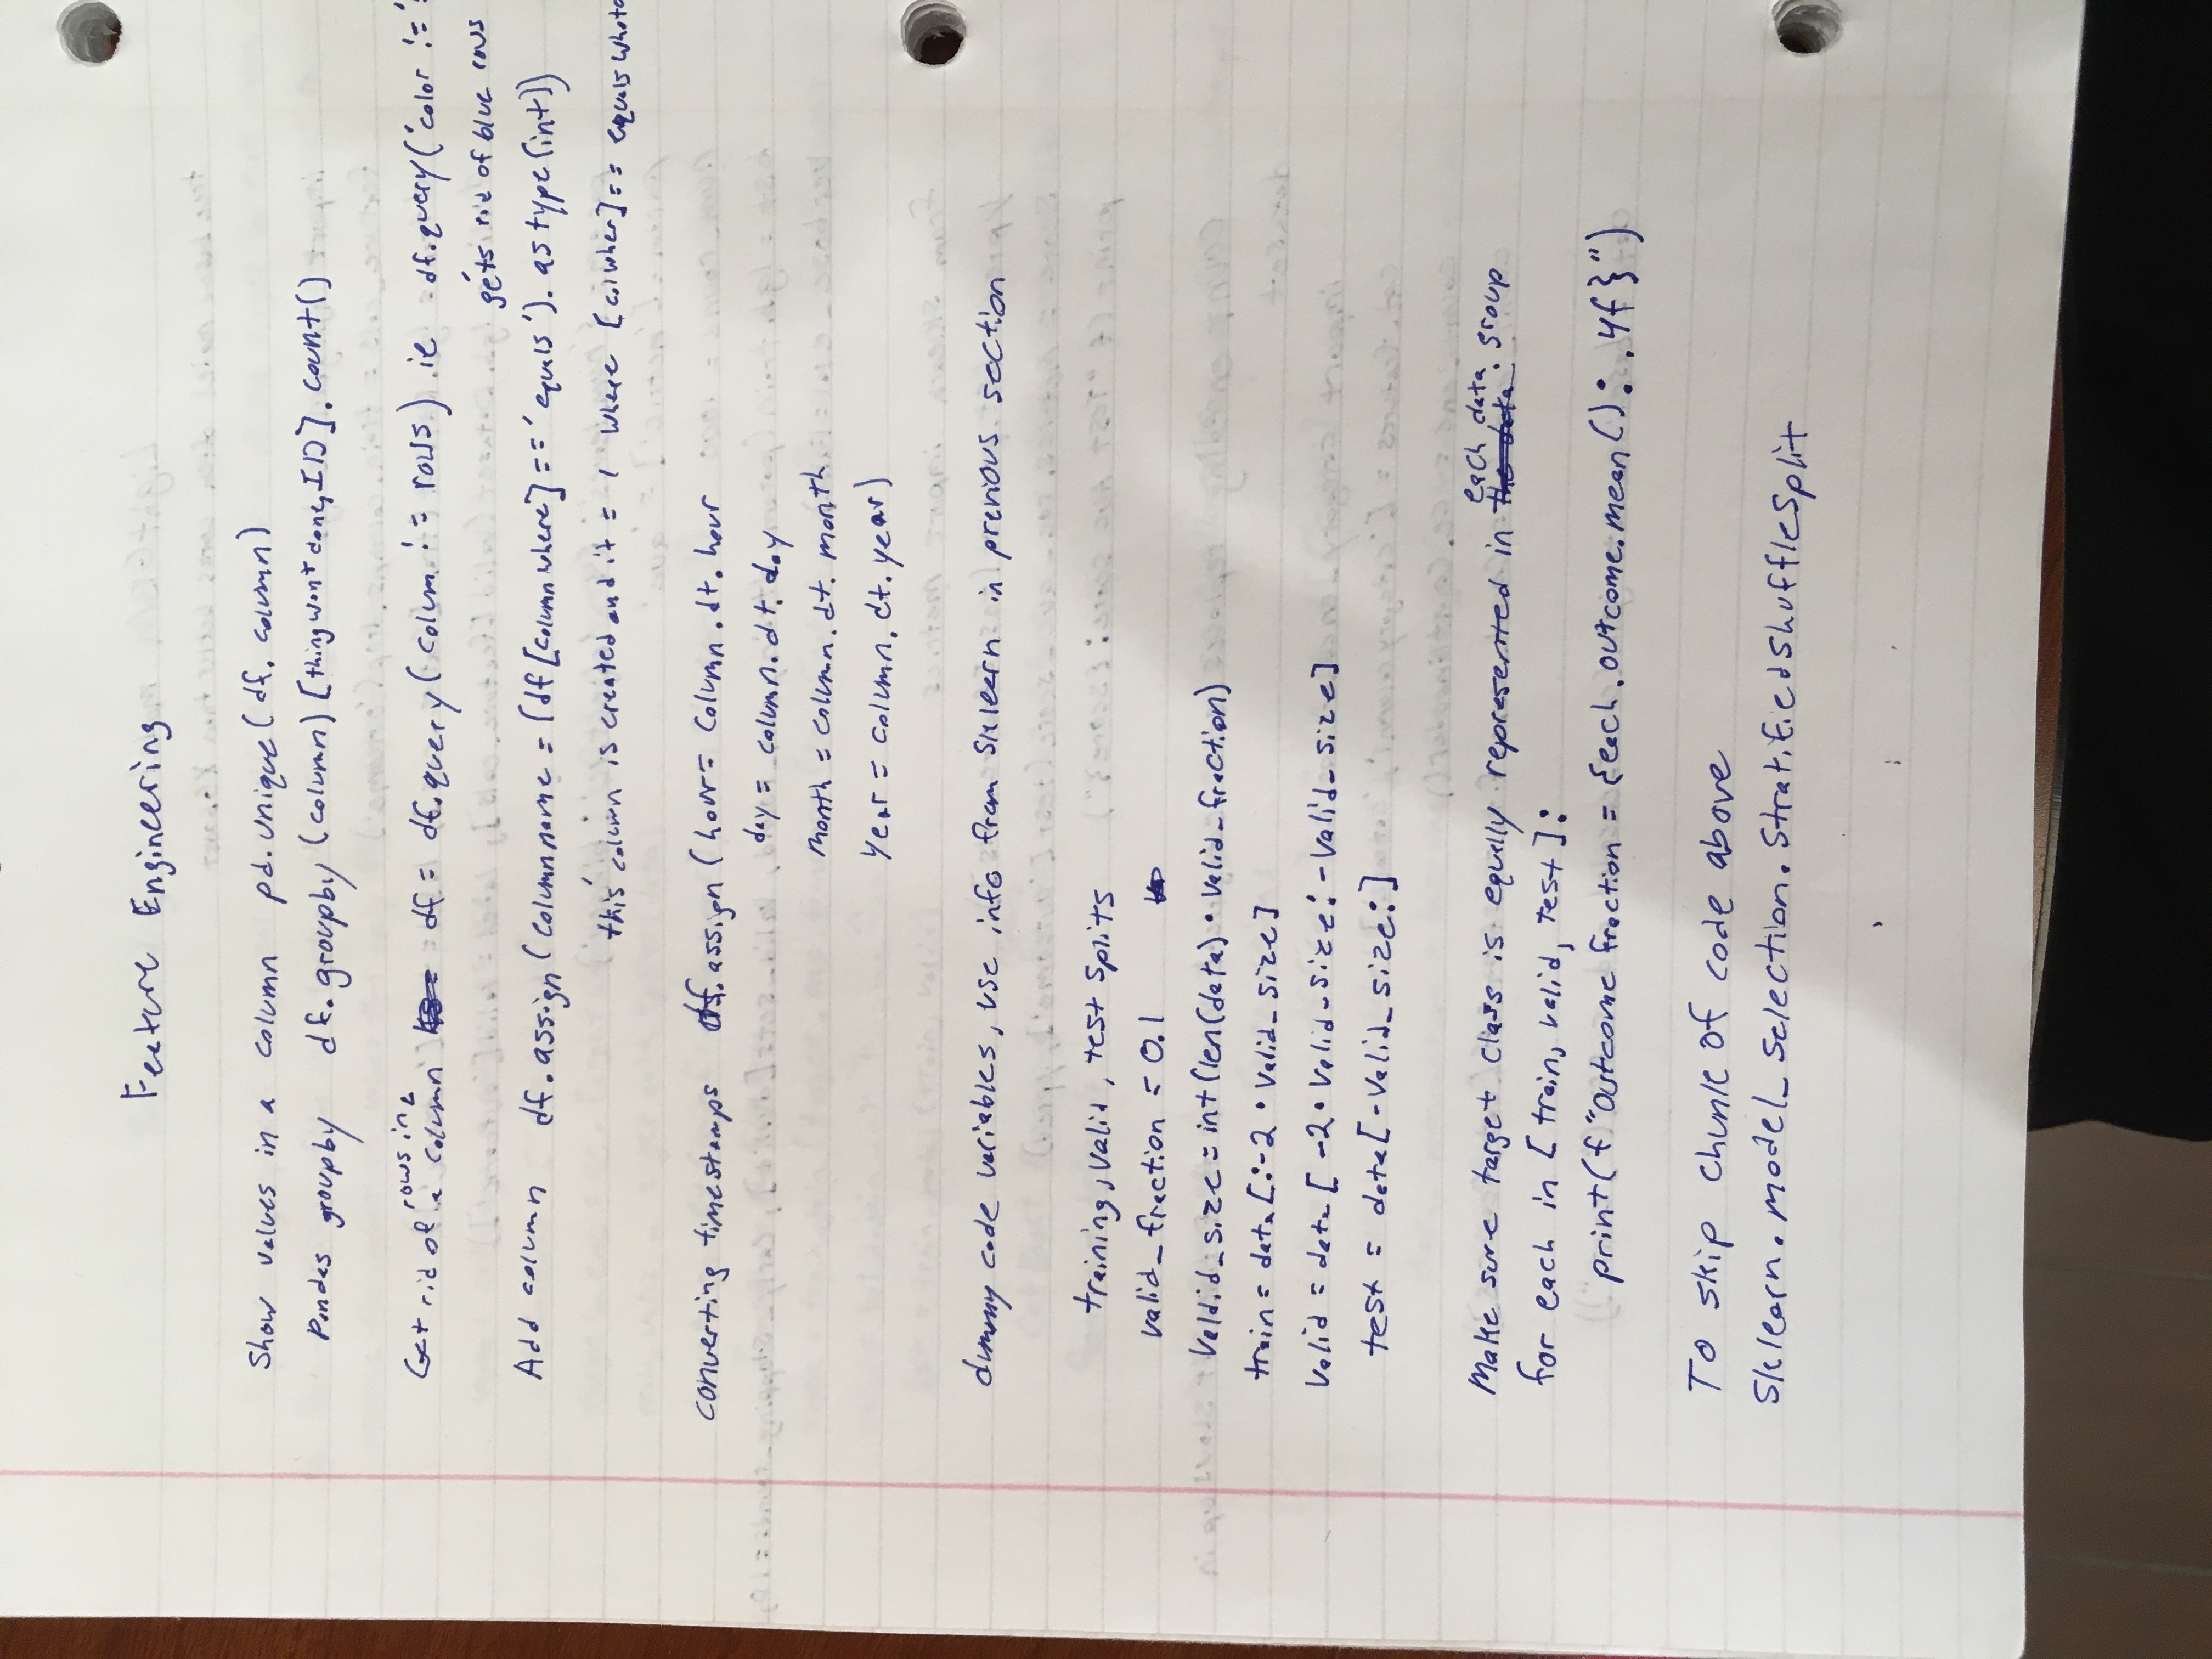 Feature Engineering
Show values in a column pd.unique(df.column)
Pandas groupby df.groupby(column)[thingwant done, ID].count()
rows in a
Get rid of a column df = df.query(colum != rows) ie df.query('color !='
gets rid of blue rows
Add column df.assign(columnname = (df[columnwhere]=='equals').astype(int))
this column is created and it = 1 where [colwher]== equals
converting timestamps df.assign(hour = column.dt.hour
day = column.dt.day
month = column.dt.month
year = column.dt.year)
dummy code variables, use info from Sklearn in previous section
training, valid, test splits
valid_fraction = 0.1
Valid_size = int(len(data) • valid_fraction)
train = data[:-2 • valid_size]
Valid = data[-2 • valid_size:-Valid_size]
test = data[-Valid_size:]
each data
Make sure target class is equally represented in the data group
for each in [train, valid, test]:
print(f"Outcome fraction = {each.outcome.mean():.4f}")
To skip chunk of code above
Sklearn.model_selection.StratifiedShuffleSplit